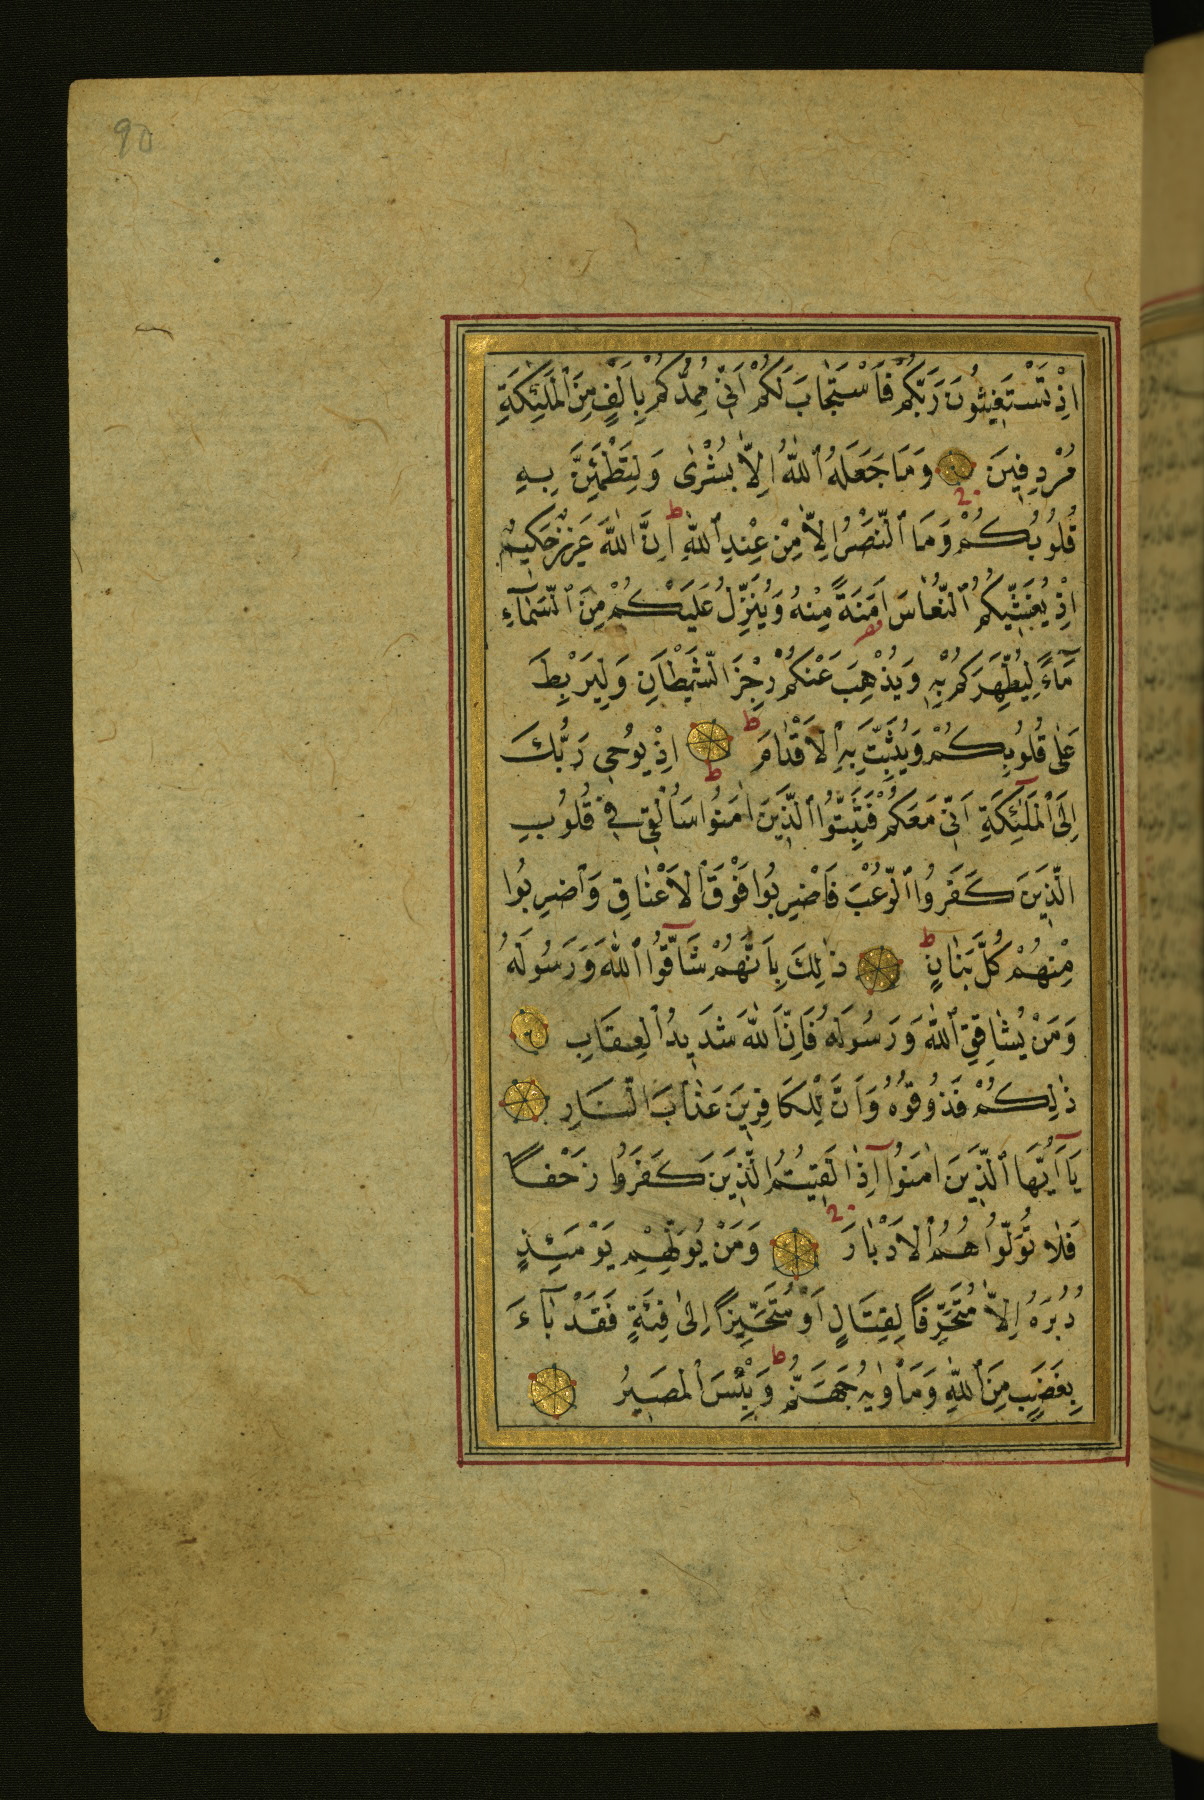 90
اِذْ تَسْتَغِيثُونَ رَبَّكُمْ فَاسْتَجَابَ لَكُمْ اَنِّى مُمِدُّكُمْ بِاَلْفٍ مِنَ الْمَلٰئِكَةِ
مُرْدِفِينَ وَمَا جَعَلَهُ اللّٰهُ اِلَّا بُشْرٰى وَلِتَطْمَئِنَّ بِهِ
قُلُوبُكُمْ وَمَا النَّصْرُ اِلَّا مِنْ عِنْدِ اللّٰهِ ط اِنَّ اللّٰهَ عَزِيزٌ حَكِيمٌ
اِذْ يُغَشِّيكُمُ النُّعَاسَ اَمَنَةً مِنْهُ وَيُنَزِّلُ عَلَيْكُمْ مِنَ السَّمَآءِ
مَآءً لِيُطَهِّرَكُمْ بِهِ وَيُذْهِبَ عَنْكُمْ رِجْزَ الشَّيْطَانِ وَلِيَرْبِطَ
عَلٰى قُلُوبِكُمْ وَيُثَبِّتَ بِهِ الْاَقْدَامَ ط اِذْ يُوحِى رَبُّكَ
اِلَى الْمَلٰٓئِكَةِ اَنِّى مَعَكُمْ فَثَبِّتُوا الَّذِينَ اٰمَنُوا سَاُلْقِى فِى قُلُوبِ
الَّذِينَ كَفَرُوا الرُّعْبَ فَاضْرِبُوا فَوْقَ الْاَعْنَاقِ وَاضْرِبُوا
مِنْهُمْ كُلَّ بَنَانٍ ط ذٰلِكَ بِاَنَّهُمْ شَآقُّوا اللّٰهَ وَرَسُولَهُ
وَمَنْ يُشَاقِقِ اللّٰهَ وَرَسُولَهُ فَاِنَّ اللّٰهَ شَدِيدُ الْعِقَابِ
ذٰلِكُمْ فَذُوقُوهُ وَاَنَّ لِلْكَافِرِينَ عَذَابَ النَّارِ
يَآ اَيُّهَا الَّذِينَ اٰمَنُوآ اِذَا لَقِيتُمُ الَّذِينَ كَفَرُوا زَحْفًا
فَلَا تُوَلُّوهُمُ الْاَدْبَارَ وَمَنْ يُوَلِّهِمْ يَوْمَئِذٍ
دُبُرَهُ اِلَّا مُتَحَرِّفًا لِقِتَالٍ اَوْ مُتَحَيِّزًا اِلٰى فِئَةٍ فَقَدْ بَآءَ
بِغَضَبٍ مِنَ اللّٰهِ وَمَاْوٰيهُ جَهَنَّمُ ط وَبِئْسَ الْمَصِيرُ